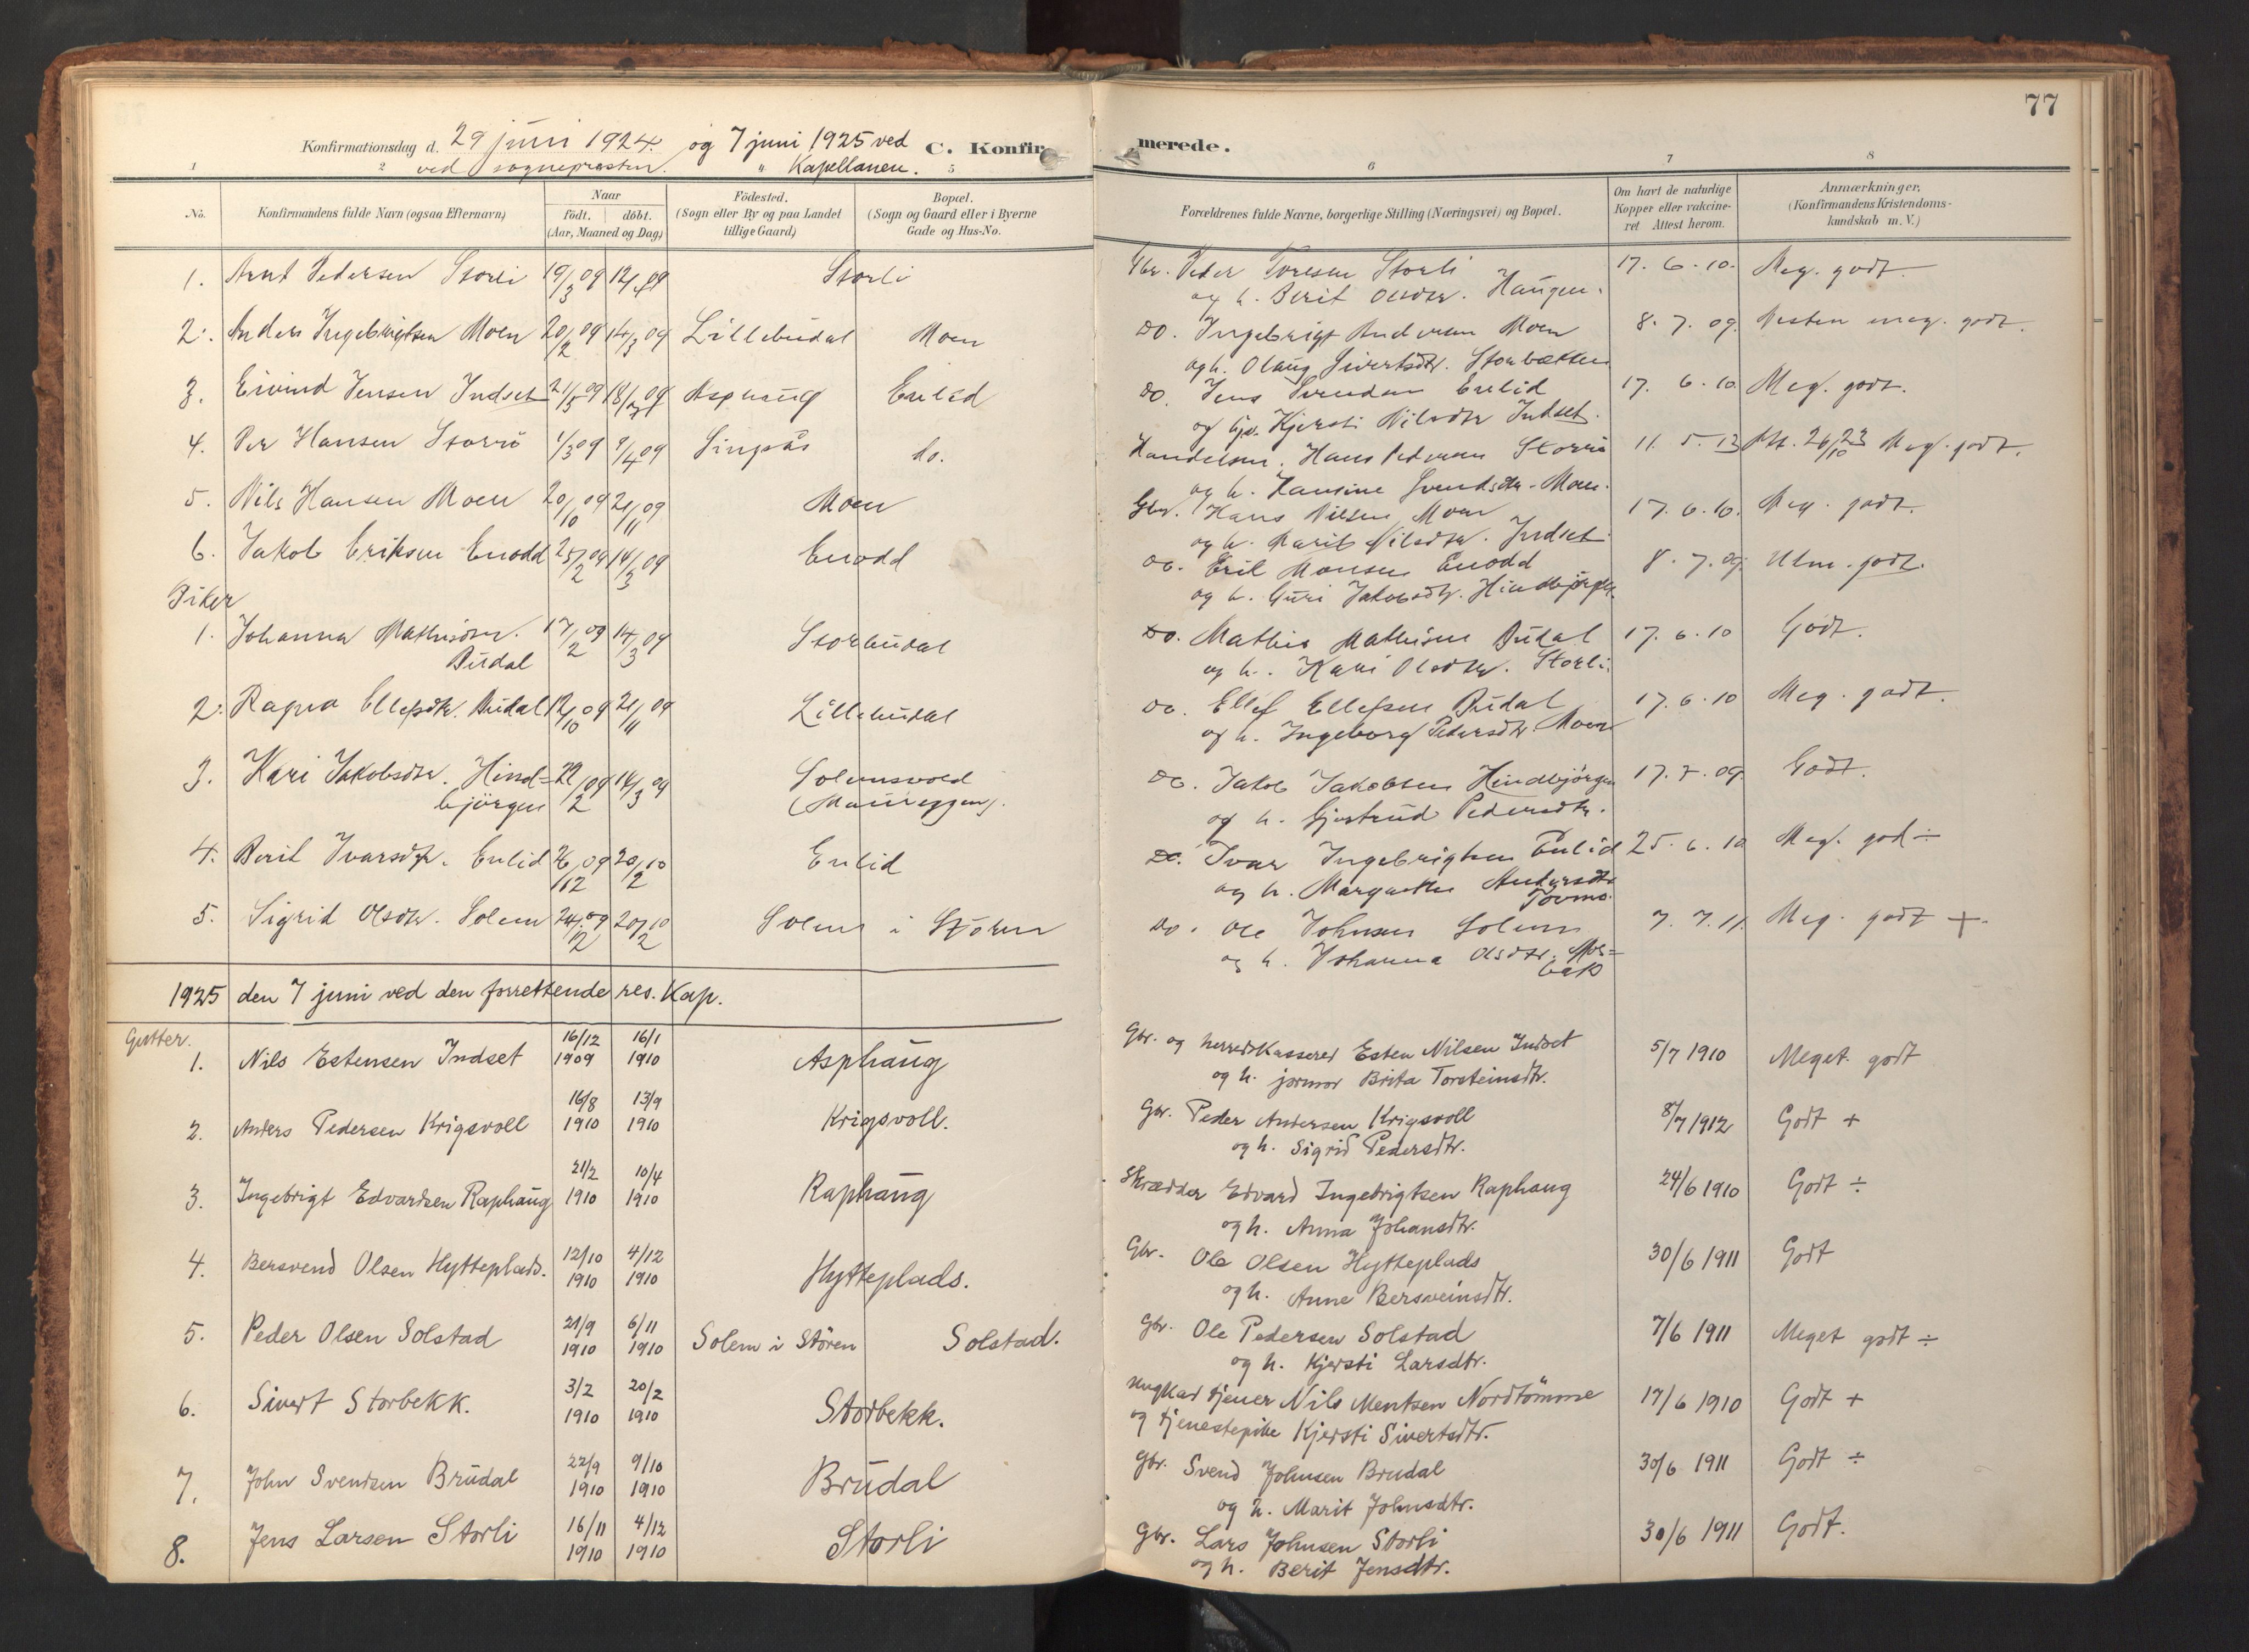 77
Konfirmationsdag d. 29 juni 1924. og 7 juni 1925 ved C. Konfirmerede.
ved sognepresten. " Kapellanen.
1 2 5 6 7 8
No. Konfirmandens fulde Navn (ogsaa Efternavn)
Naar
födt. döbt.
(Aar, Maaned og Dag)
Födested.
(Sogn eller By og paa Landet
tillige Gaard)
Bopæl.
(Sogn og Gaard eller i Byerne
Gade og Hus-No.
Forældrenes fulde Navne, borgerlige Stilling (Næringsvei) og Bopæl.
Om havt de naturlige
Kopper eller vakcine-
ret Attest herom.
Anmærkninger.
(Konfirmandens Kristendoms-
kundskab m. V.)
1. Arnt Pedersen Storli 19/3 09 12/4 09 Storli Gbr. Peder Toresen Storli 17. 6. 10. Meg. godt.
og h. Berit Olsdtr. Haugen.
2. Anders Ingebrigtsen Moen 20/2 09 14/3 09 Lillebudal Moen Do. Ingebrigt Andersen Moen 8. 7. 09. Nesten meg. godt.
og h. Olaug Sivertsdtr. Storbækken
3. Eivind Jensen Indset 21/5 09 18/7 09 Asphaug Enlid Do. Jens Svendsen Enlid 17. 6. 10 Meg. godt.
og Gjv. Kjersti Nilsdtr Indset.
4. Per Hansen Storrö 1/3 09 9/4 09 Singsås do. Handelsm. Hans Pedersen Storrö 11. 5. 13 Att. 26/10 23 Meg. godt.
og h. Hansine Svendsdtr. Moen.
5. Nils Hansen Moen 20/10 09 21/11 09 Moen Gbr. Hans Nilsen Moen 17. 6. 10. Meg. godt.
og h. Marit Nilsdtr. Indset
6. Jakob Eriksen Enodd 25/2 09 14/3 09 Enodd Do. Erik Monsen Enodd 8. 7. 09. Utm. godt.
og h. Guri Jakobsdtr. Hindbjörgen.
Piker
1. Johanna Mathisdtr. 17/2 09 14/3 09 Storbudal Do. Mathis Mathisen Budal 17. 6. 10 Godt.
Budal og h. Kari Olsdtr. Storli.
2. Ragna Ellefsdtr. Budal 12/10 09 21/11 09 Lillebudal Do. Ellef Ellefsen Budal 17. 6. 10 Meg. godt.
og h. Ingeborg Pedersdtr. Moen
3. Kari Jakobsdtr. Hind- 22/2 09 14/3 09 Solemsvold Do. Jakob Jakobsen Hindbjörgen 17. 7. 09. Godt.
björgen og h. Gjertrud Pedersdtr.
4. Berit Ivarsdtr. Enlid 26/12 09 20/2 10 Enlid Do. Ivar Ingebrigtsen Enlid 25. 6. 10 Meg. god ÷
og h. Margrethe Andersdtr
Tovmo.
5. Sigrid Olsdtr. Solem 24/12 09 20/2 10 Solem i Stören Do. Ole Johnsen Solem 7. 7. 11. Meg. godt +.
og h. Johanna Olsdtr. Mos-
bak
1925 den 7 juni ved den forrettende res. Kap.
Gutter.
1. Nils Estensen Indset 16/12 1909 16/1 1910 Asphaug Gbr. og herredskasserer Esten Nilsen Indset 5/7 1910 Meget godt
og h. jormor Brita Torsteinsdtr.
2. Anders Pedersen Krigsvoll 16/8 1910 13/9 1910 Krigsvoll. Gbr. Peder Andersen Krigsvoll 8/7 1912 Godt +
og h. Sigrid Pedersdtr.
3. Ingebrigt Edvardsen Raphaug 21/2 1910 10/4 1910 Raphaug Skrædder Edvard Ingebrigtsen Raphaug 24/6 1910 Godt ÷
og h. Anna Johansdtr.
4. Bersvend Olsen Hytteplads. 12/10 1910 4/12 1910 Hytteplads. Gbr. Ole Olsen Hytteplads 30/6 1911 Godt
og h. Anne Bersveinsdtr.
5. Peder Olsen Solstad 21/9 1910 6/11 1910 Solem i Stören Solstad. Gbr. Ole Pedersen Solstad 7/6 1911 Meget godt ÷
og h. Kjersti Larsdtr.
6. Sivert Storbekk. 3/2 1910 20/2 1910 Storbekk. Ungkar tjener Nils Mentsen Nordtömme 17/6 1910 Godt +
og tjenestepike Kjersti Sivertsdtr.
7. John Svendsen Brudal 22/9 1910 9/10 1910 Brudal Gbr. Svend Johnsen Brudal 30/6 1911 Godt ÷
og h. Marit Johnsdtr.
8. Jens Larsen Storli 16/11 1910 4/12 1910 Storli Gbr. Lars Johnsen Storli 30/6 1911 Godt.
og h. Berit Jensdtr.